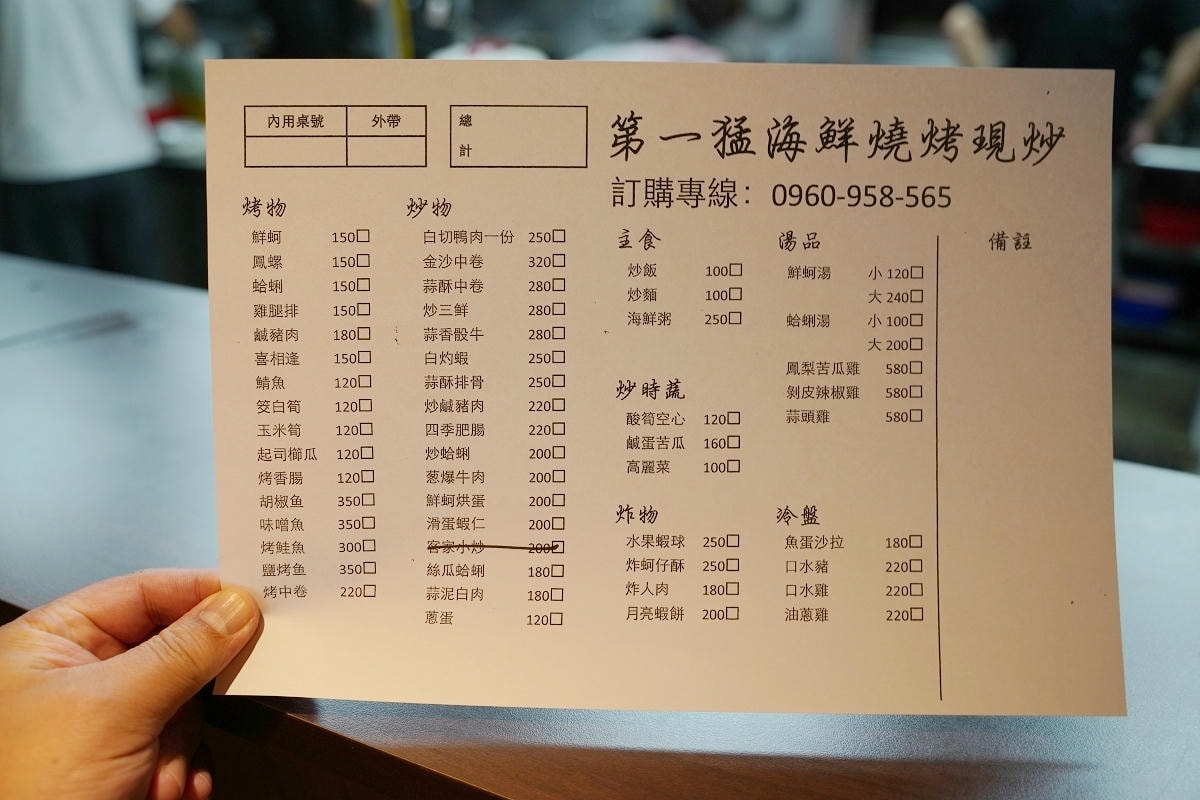 內用桌號 外帶
總
計
第一猛海鮮燒烤現炒
訂購專線：0960-958-565
烤物
鮮蚵 150□
鳳螺 150□
蛤蜊 150□
雞腿排 150□
鹹豬肉 180□
喜相逢 150□
鯖魚 120□
筊白筍 120□
玉米筍 120□
起司櫛瓜 120□
烤香腸 120□
胡椒魚 350□
味噌魚 350□
烤鮭魚 300□
鹽烤魚 350□
烤中卷 220□
炒物
白切鴨肉一份 250□
金沙中卷 320□
蒜酥中卷 280□
炒三鮮 280□
蒜香骰牛 280□
白灼蝦 250□
蒜酥排骨 250□
炒鹹豬肉 220□
四季肥腸 220□
炒蛤蜊 200□
葱爆牛肉 200□
鮮蚵烘蛋 200□
滑蛋蝦仁 200□
客家小炒 200□
絲瓜蛤蜊 180□
蒜泥白肉 180□
蔥蛋 120□
主食
炒飯 100□
炒麵 100□
海鮮粥 250□
炒時蔬
酸筍空心 120□
鹹蛋苦瓜 160□
高麗菜 100□
炸物
水果蝦球 250□
炸蚵仔酥 250□
炸人肉 180□
月亮蝦餅 200□
湯品
鮮蚵湯 小 120□
大 240□
蛤蜊湯 小 100□
大 200□
鳳梨苦瓜雞 580□
剝皮辣椒雞 580□
蒜頭雞 580□
冷盤
魚蛋沙拉 180□
口水豬 220□
口水雞 220□
油蔥雞 220□
備註